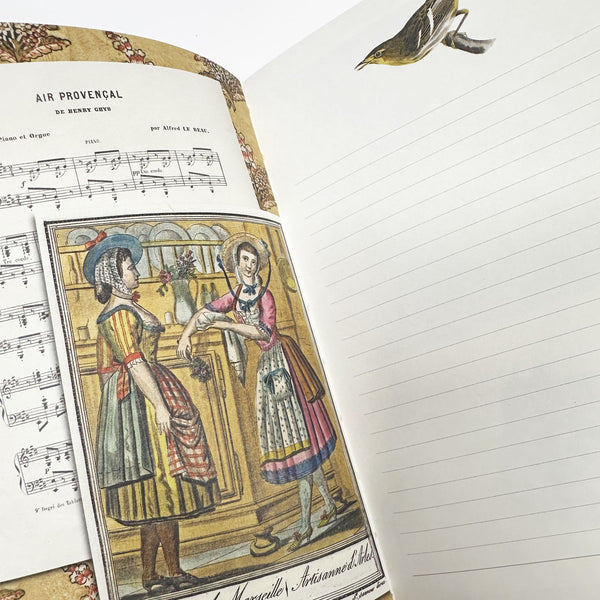 AIR PROVENÇAL
DE HENRY GHYS
Piano et Orgue
par Alfred LE BEAU.
PIANO.
f
pp
p
Marseille
Artisanne d'Arles